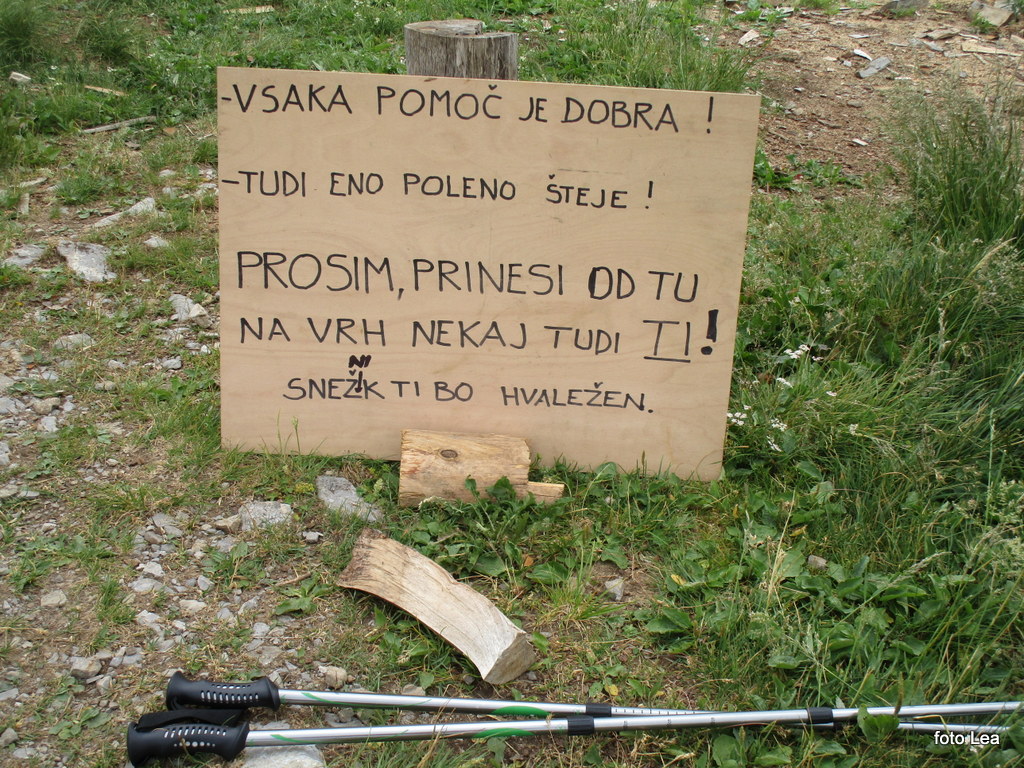 -VSAKA POMOČ JE DOBRA !
-TUDI ENO POLENO ŠTEJE !
PROSIM, PRINESI OD TU
NA VRH NEKAJ TUDI TI!
SNEŽNIK TI BO HVALEŽEN.
foto Lea